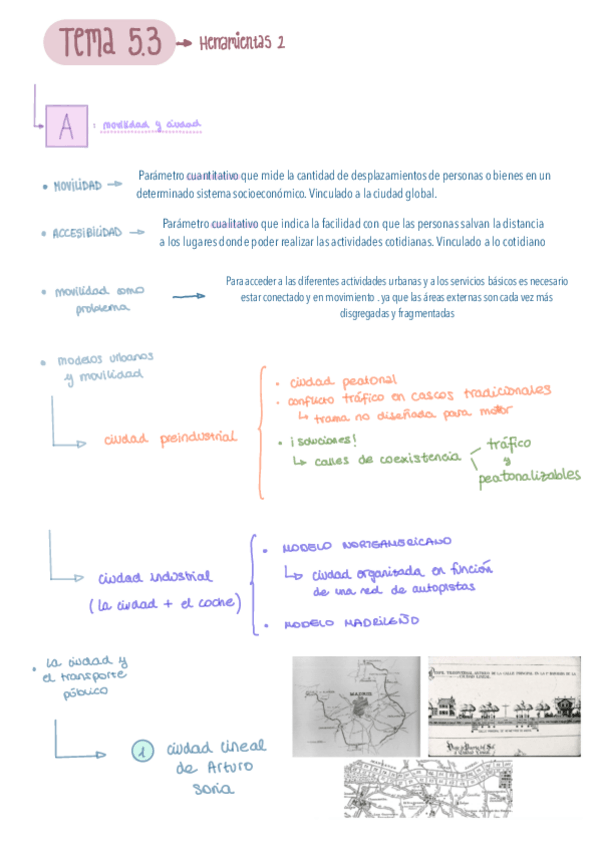 Tema 5.3 → Herramientas 2
A : movilidad y ciudad
• MOVILIDAD → Parámetro cuantitativo que mide la cantidad de desplazamientos de personas o bienes en un
determinado sistema socioeconómico. Vinculado a la ciudad global.
• ACCESIBILIDAD → Parámetro cualitativo que indica la facilidad con que las personas salvan la distancia
a los lugares donde poder realizar las actividades cotidianas. Vinculado a lo cotidiano
• movilidad como
problema
→ Para acceder a las diferentes actividades urbanas y a los servicios básicos es necesario
estar conectado y en movimiento . ya que las áreas externas son cada vez más
disgregadas y fragmentadas
• modelos urbanos
y movilidad
ciudad preindustrial
• ciudad peatonal
• conflicto tráfico en cascos tradicionales
↳ trama no diseñada para motor
• ¡soluciones!
↳ calles de coexistencia
tráfico
y
peatonalizables
ciudad industrial
(la ciudad + el coche)
• MODELO NORTEAMERICANO
↳ ciudad organizada en función
de una red de autopistas
• MODELO MADRILEÑO
• La ciudad y
el transporte
público
1 ciudad lineal
de Arturo
Soria
MADRID